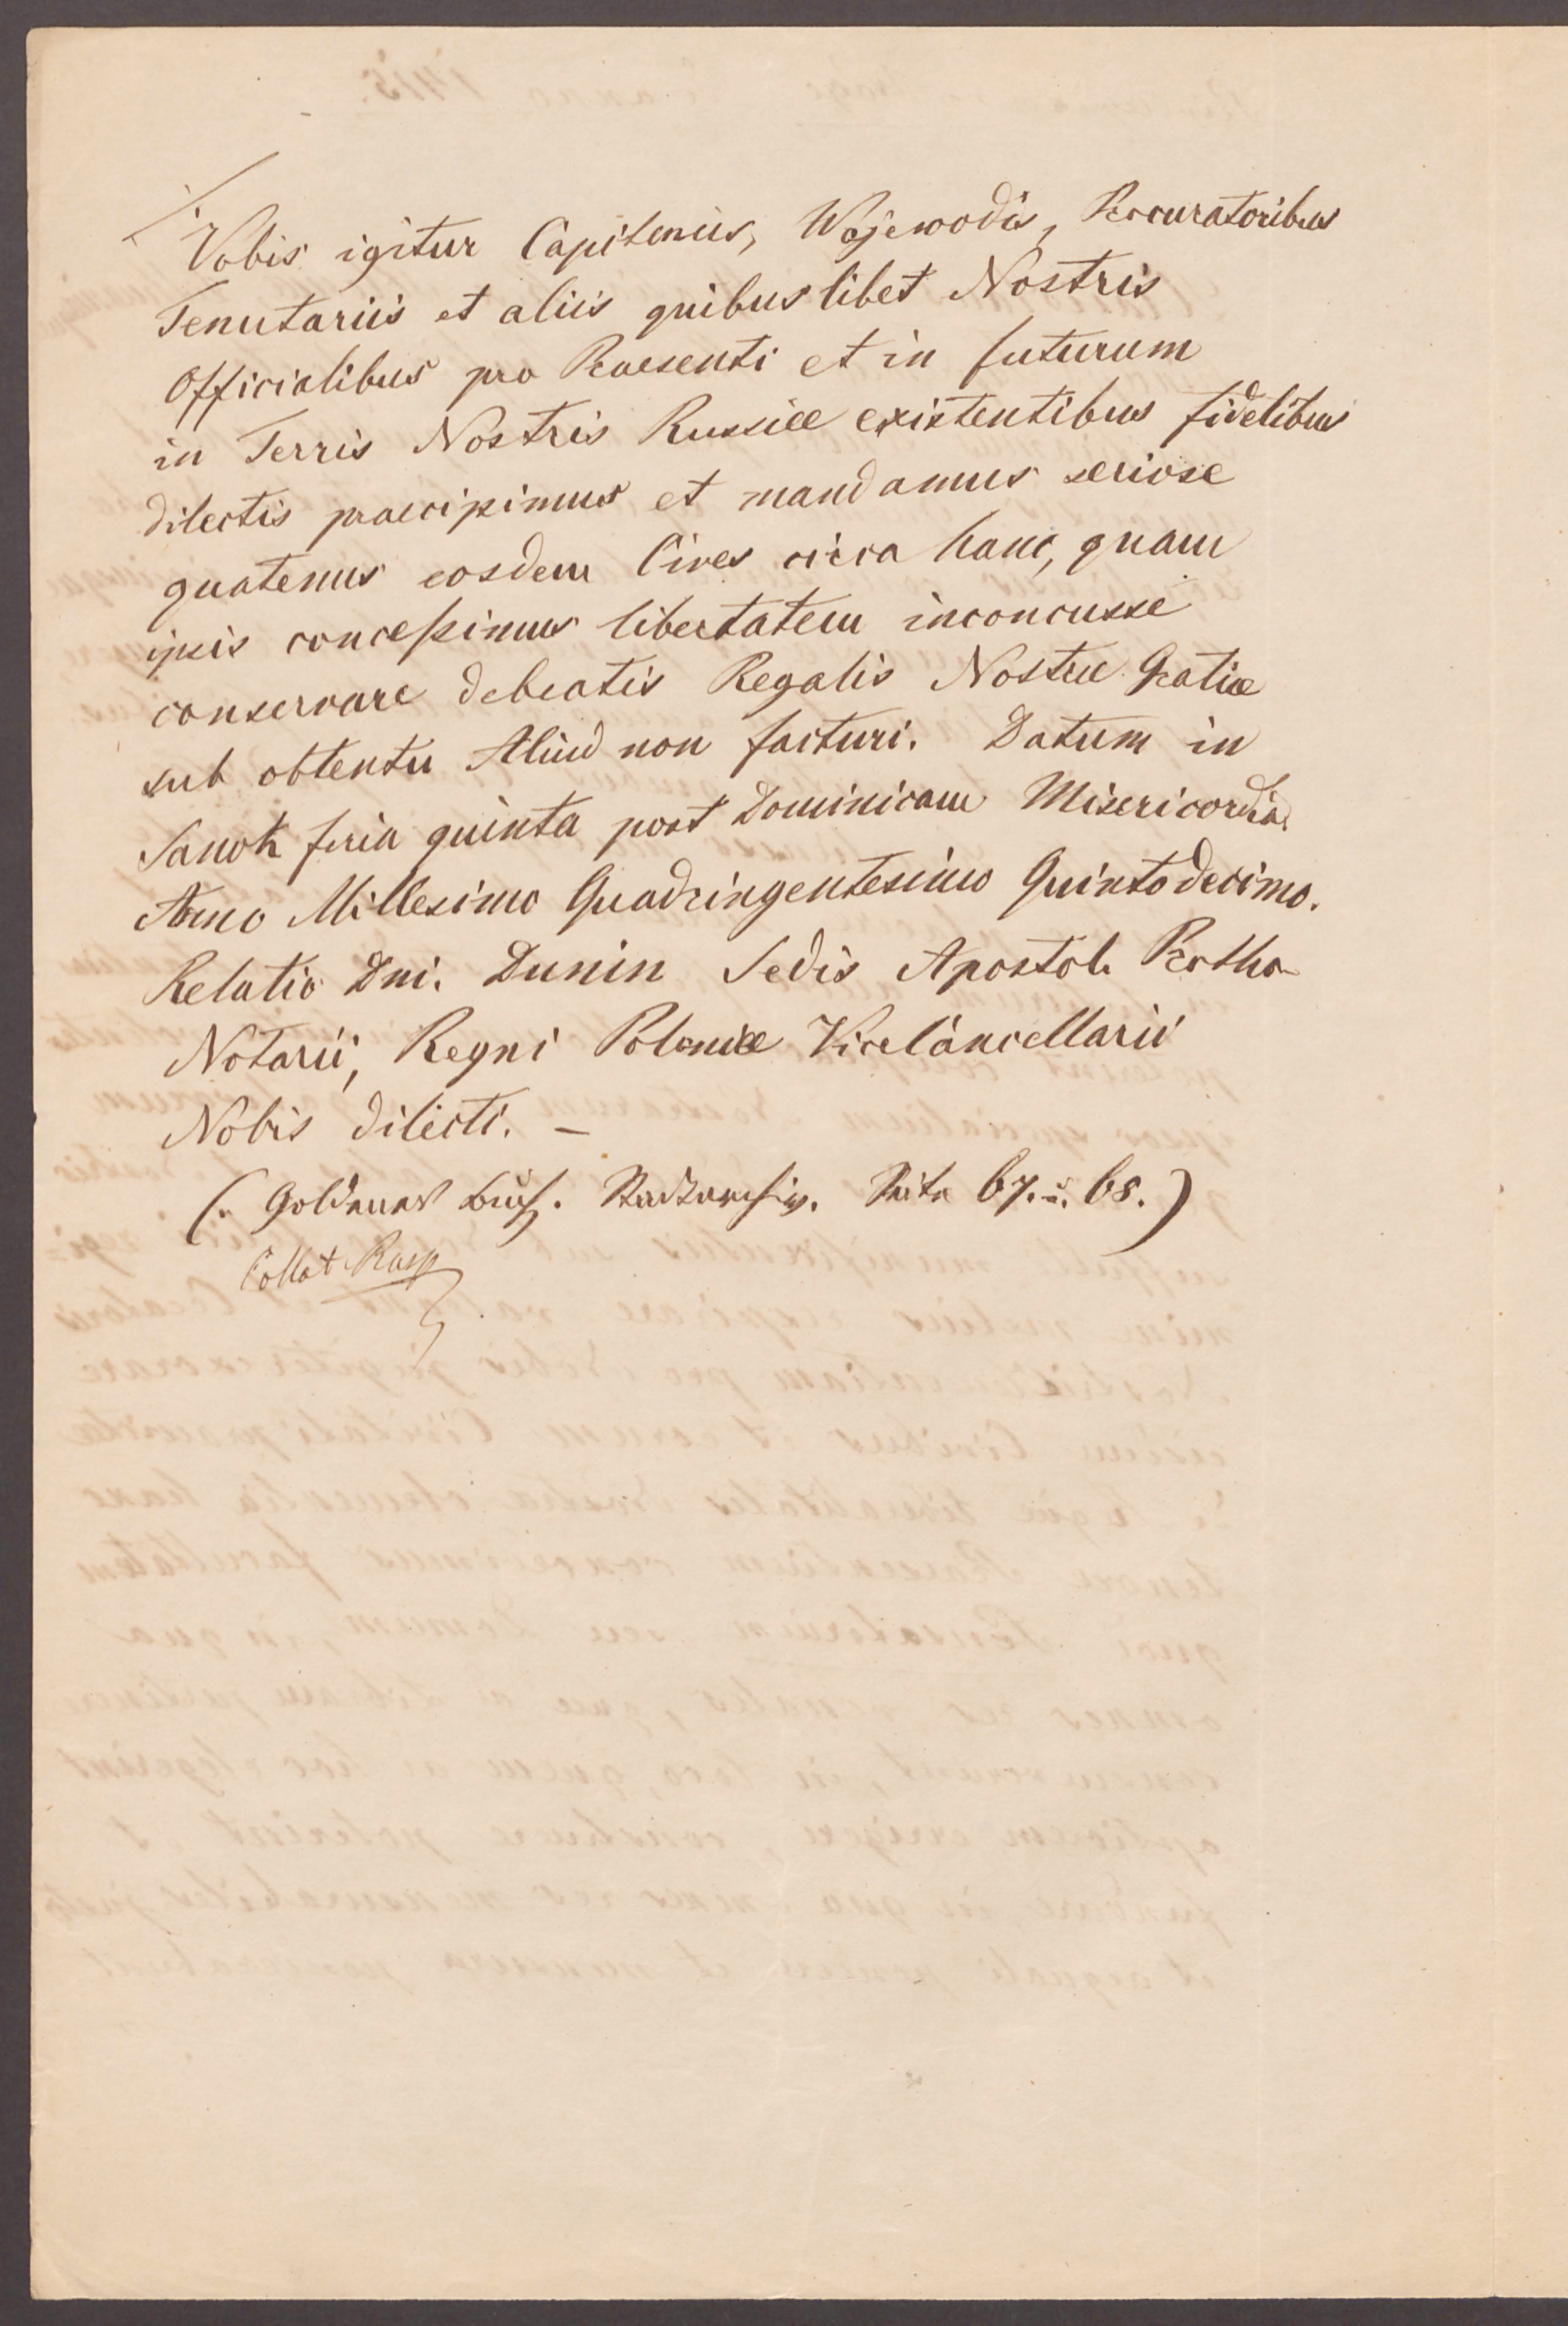 Vobis igitur Capiteneis, Wojewodis, Procuratoribus
Tenutariis et aliis quibuslibet Nostris
Officialibus pro Praesenti et in futurum
in Terris Nostris Russiæ existentibus fidelibus
dilectis praecipimus et mandamus seriose
quatenus eosdem Cives circa hanc, quam
ipsis concessimus libertatem inconcusse
conservare debeatis Regalis Nostræ Gratiæ
sub obtentu Aliud non facturi. Datum in
Sanok feria quinta post Dominicam Misericordia.
Anno Millesimo Quadringentesimo Quintodecimo.
Relatio Dni. Dunin Sedis Apostol. Protho
Notarii, Regni Poloniæ ViceCancellarii
Nobis dilecti. –
(. Goldenes Seite 67. u. 68.)
Collat Rasp